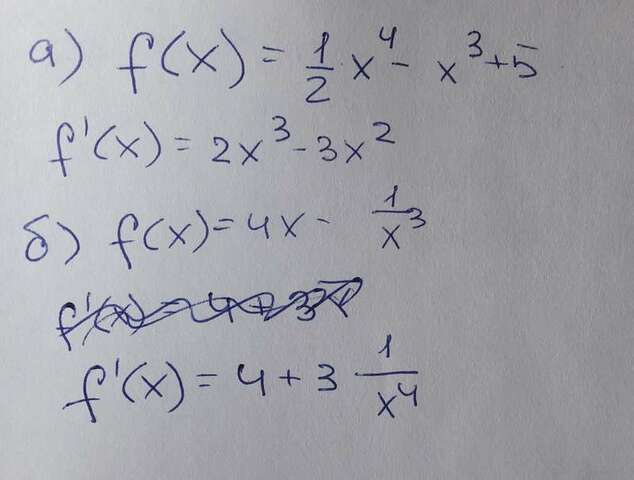 а) f(x) = 1/2 x⁴ - x³+5
f'(x) = 2x³-3x²
б) f(x)=4x - 1/x³
f'(x) = 4 + 3 1/x⁴